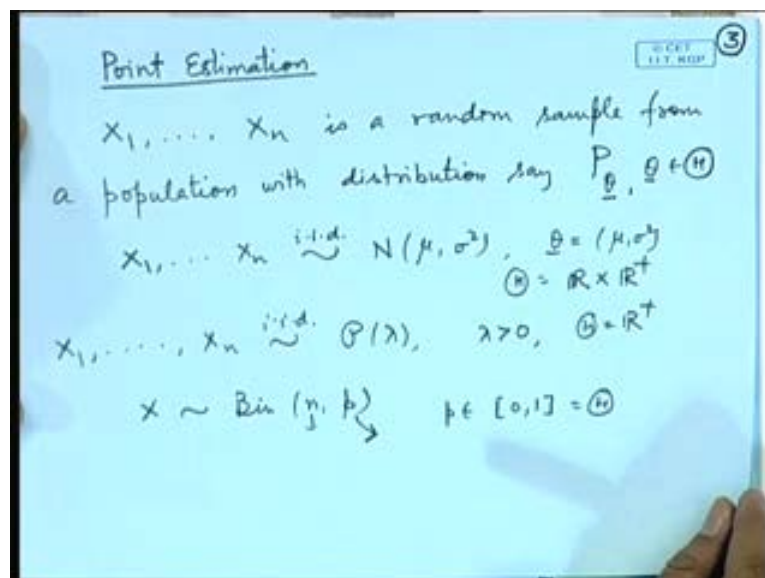 ③
© CET
I.I.T. KGP
Point Estimation
X₁, . . . . Xₙ is a random sample from
a population with distribution say P_θ, θ ∈ Θ
X₁, . . . Xₙ i.i.d. ~ N(μ, σ²), θ = (μ, σ²)
Θ = ℝ × ℝ⁺
X₁, . . . . . , Xₙ i.i.d. ~ P(λ), λ>0, Θ = ℝ⁺
X ~ Bin (n, p) p ∈ [0,1] = Θ